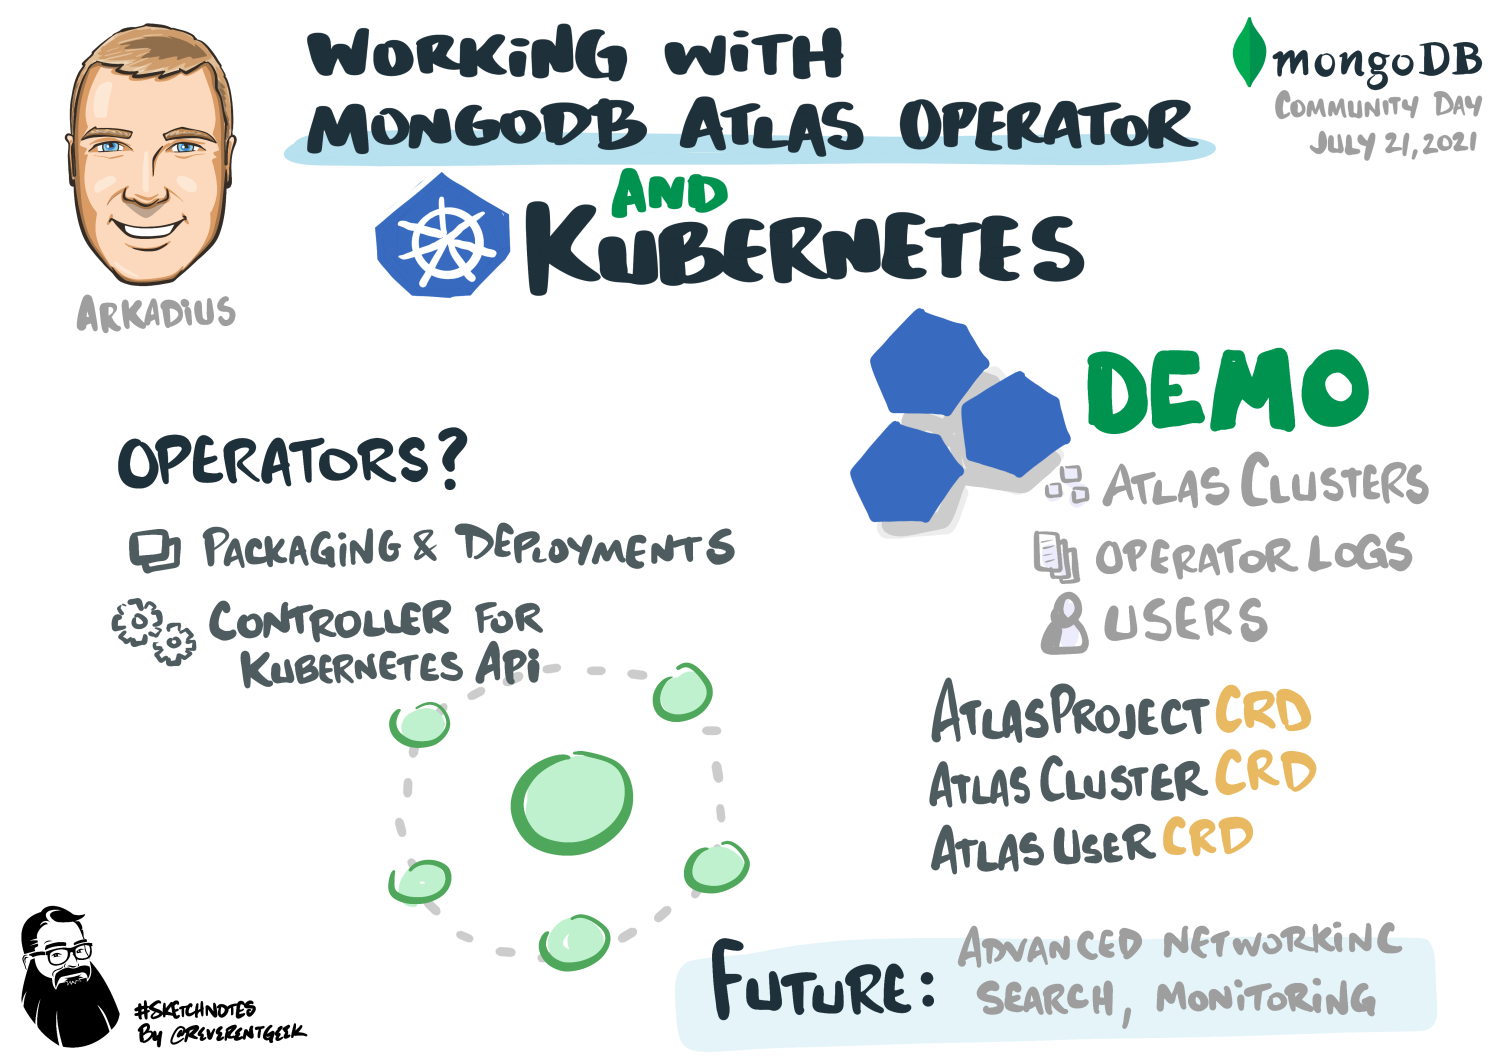 WORKING WITH
MONGODB ATLAS OPERATOR
AND
KUBERNETES
mongoDB
COMMUNITY DAY
JULY 21, 2021
ARKADIUS
OPERATORS?
PACKAGING & DEPLOYMENTS
CONTROLLER FOR
KUBERNETES API
DEMO
ATLAS CLUSTERS
OPERATOR LOGS
USERS
ATLASPROJECT CRD
ATLAS CLUSTER CRD
ATLAS USER CRD
FUTURE: ADVANCED NETWORKING
SEARCH, MONITORING
#SKETCHNOTES
BY @REVERENTGEEK